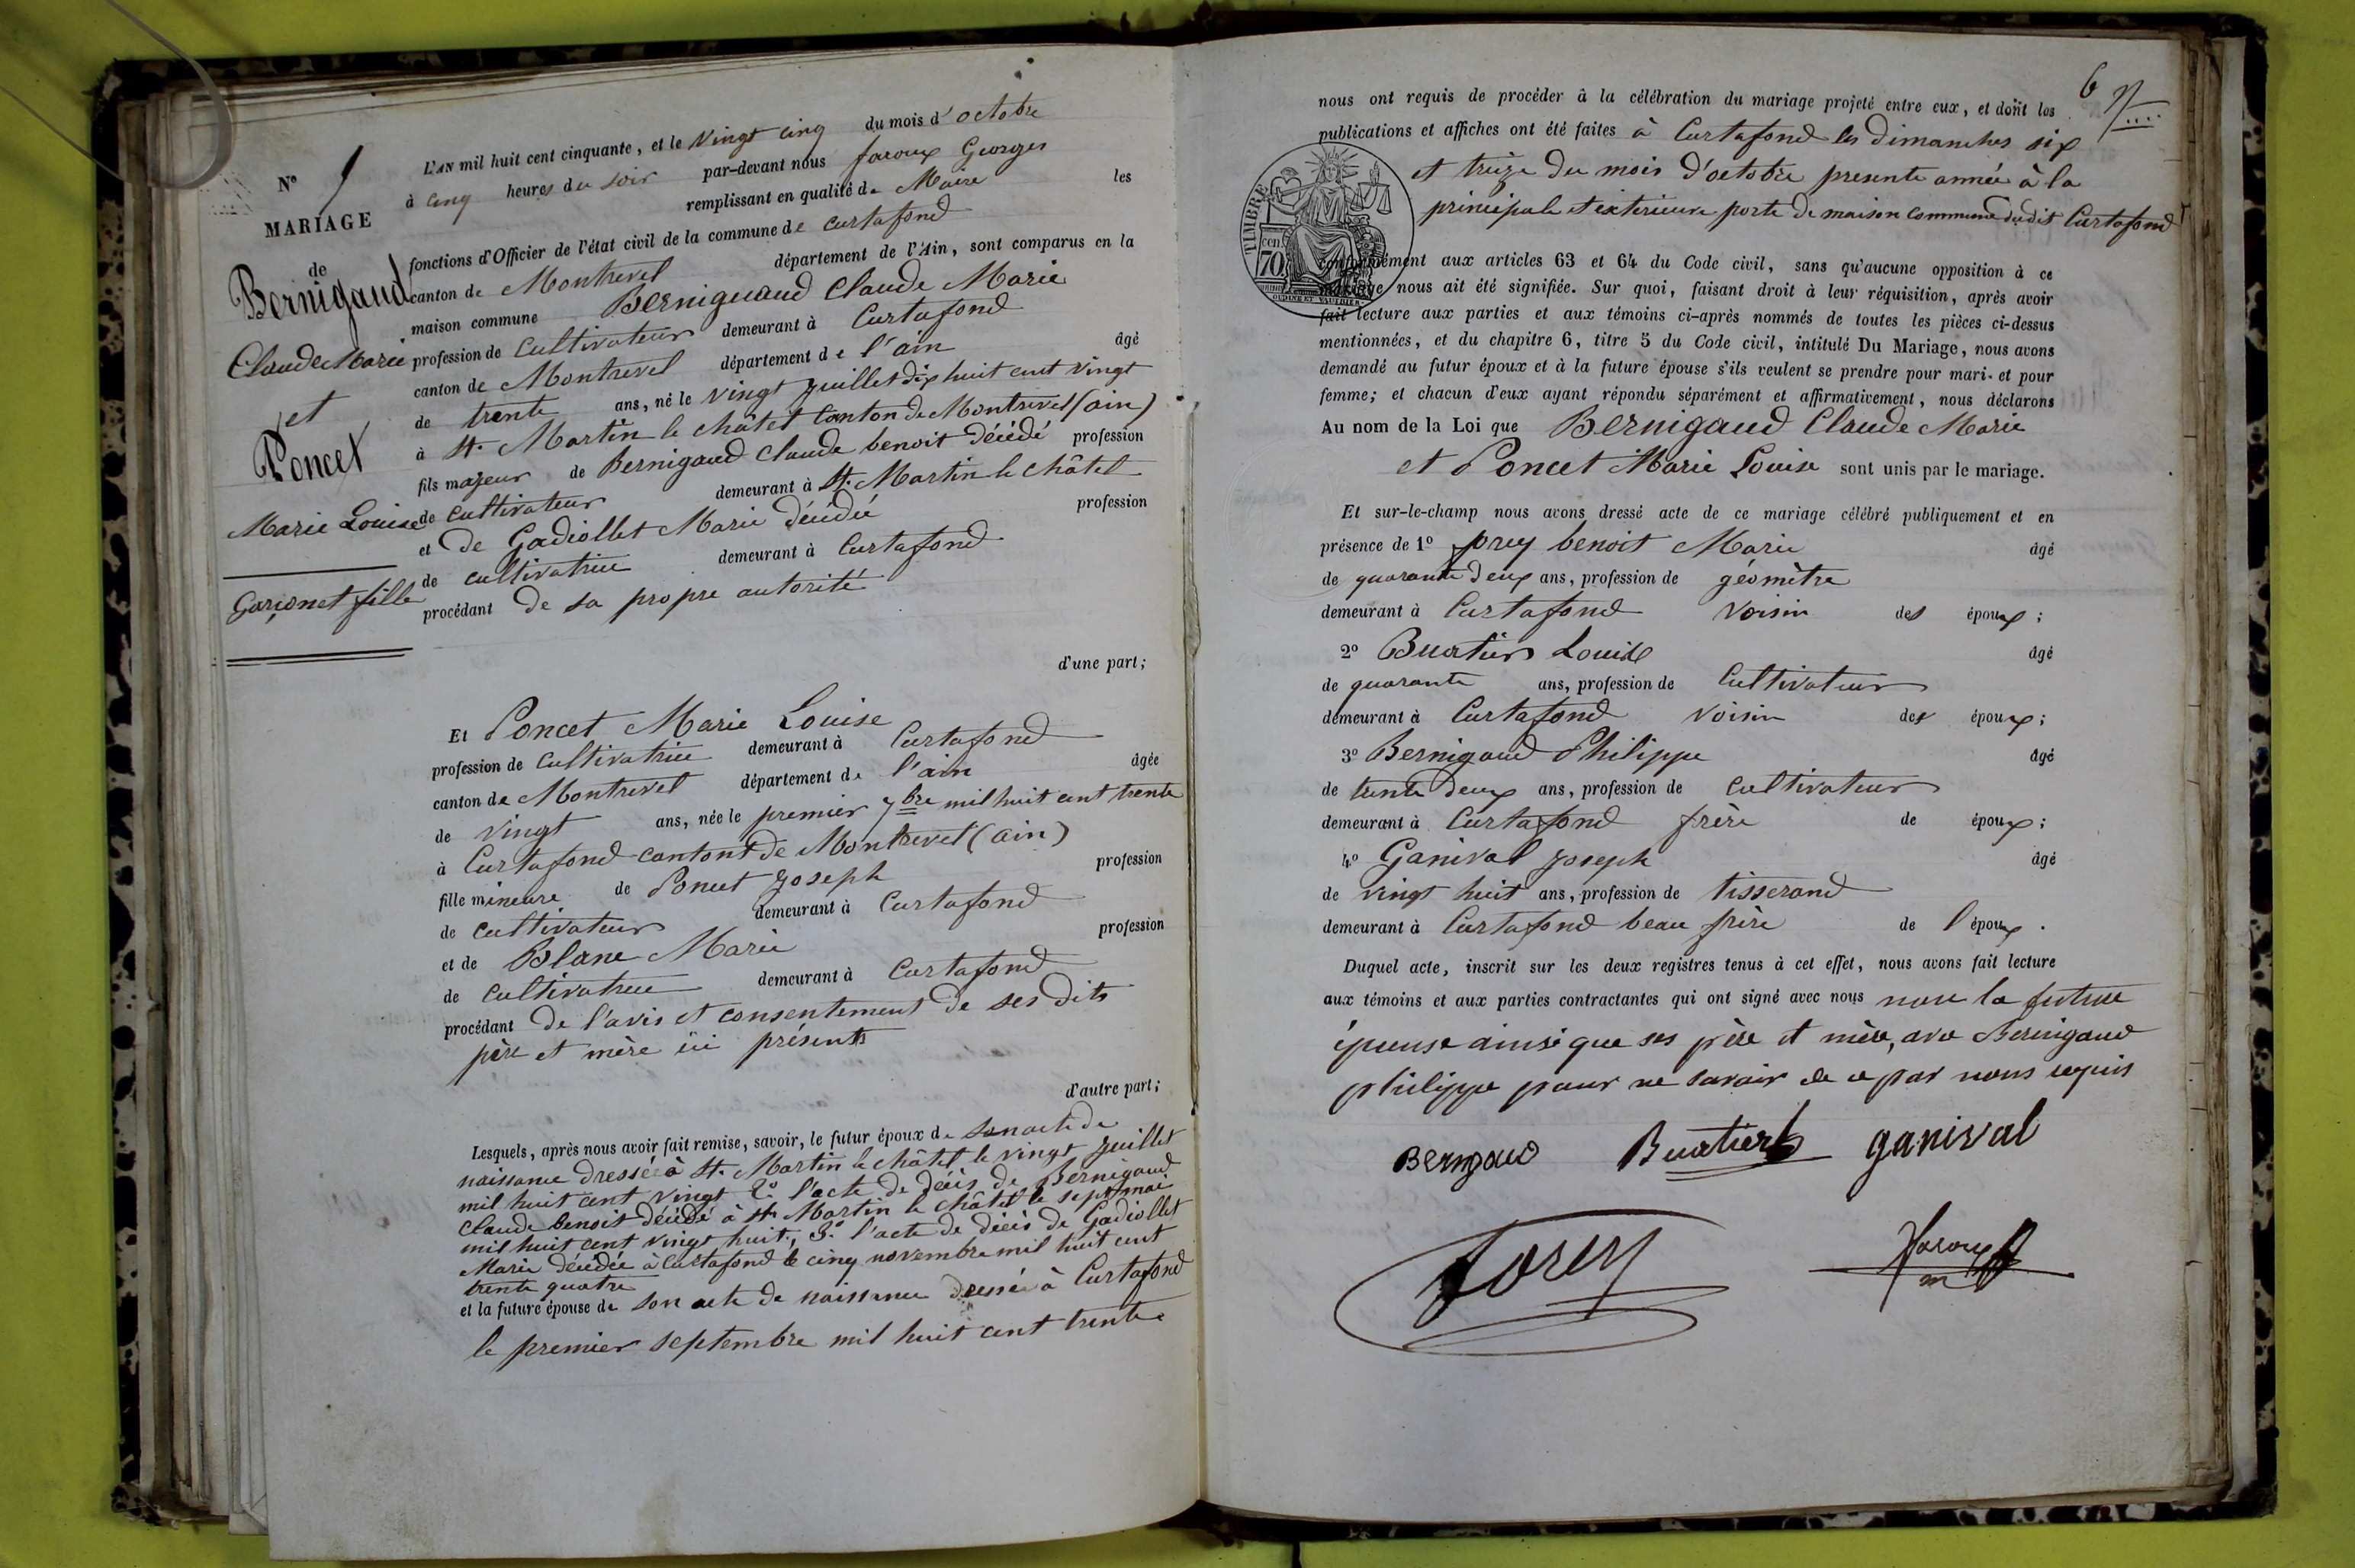 N° 9
MARIAGE
de
Bernigaud
Claude Marie
et
Poncet
Marie Louise
Garçon et fille
L'AN mil huit cent cinquante, et le vingt cinq du mois d'octobre
à cinq heures du soir par-devant nous faroux Georges
remplissant en qualité de Maire les
fonctions d'Officier de l'état civil de la commune de curtafond
canton de Montrevel département de l'Ain, sont comparus en la
maison commune Berniguaud Claude Marie
profession de Cultivateur demeurant à Curtafond
canton de Montrevel département de l'ain âgé
de trente ans, né le vingt juillet dix huit cent vingt
à St. Martin le châtel Canton de Montrevel (ain)
fils majeur de Bernigaud Claude benoit décédé profession
de cultivateur demeurant à St. Martin le châtel
et de Gadiollet Marie décédée profession
de cultivatrice demeurant à Curtafond
procédant de sa propre autorité
d'une part;
Et Poncet Marie Louise
profession de Cultivatrice demeurant à Curtafond
canton de Montrevel département de l'ain âgée
de vingt ans, née le premier 7bre mil huit cent trente
à Curtafond cantont de Montrevel (ain)
fille mineure de Poncet Joseph profession
de cultivateur demeurant à Curtafond
et de Blanc Marie profession
de cultivatrice demeurant à Curtafond
procédant de l'avis et consentement de ses dits
père et mère ici présents
d'autre part;
Lesquels, après nous avoir fait remise, savoir, le futur époux de son acte de
naissance dressée à St. Martin le châtel le vingt juillet
mil huit cent vingt 2° l'acte de décès de Bernigaud
Claude benoit décédé à St. Martin le châtel le sept mai
mil huit cent vingt huit; 3° l'acte de décès de Gadiollet
Marie décédée à Curtafond le cinq novembre mil huit cent
trente quatre
et la future épouse de son acte de naissance dressée à Curtafond
le premier septembre mil huit cent trente
6
nous ont requis de procéder à la célébration du mariage projeté entre eux, et dont les
publications et affiches ont été faites à Curtafond les dimanches six
et treize du mois d'octobre presente année à la
principale et exterieure porte de maison commune dudit Curtafond
TIMBRE
70 cen
conformément aux articles 63 et 64 du Code civil, sans qu'aucune opposition à ce
mariage nous ait été signifiée. Sur quoi, faisant droit à leur réquisition, après avoir
fait lecture aux parties et aux témoins ci-après nommés de toutes les pièces ci-dessus
mentionnées, et du chapitre 6, titre 5 du Code civil, intitulé Du Mariage, nous avons
demandé au futur époux et à la future épouse s'ils veulent se prendre pour mari et pour
femme; et chacun d'eux ayant répondu séparément et affirmativement, nous déclarons
Au nom de la Loi que Bernigaud Claude Marie
et Poncet Marie Louise sont unis par le mariage.
Et sur-le-champ nous avons dressé acte de ce mariage célébré publiquement et en
présence de 1° prey benoit Marie âgé
de quarante deux ans, profession de géomètre
demeurant à Curtafond voisin des époux;
2° Buatier Louis âgé
de quarante ans, profession de Cultivateur
demeurant à Curtafond voisin des époux;
3° Bernigaud Philippe âgé
de trente deux ans, profession de cultivateur
demeurant à Curtafond frère de époux;
4° Ganival Joseph âgé
de vingt huit ans, profession de tisserand
demeurant à Curtafond beau frère de l'époux.
Duquel acte, inscrit sur les deux registres tenus à cet effet, nous avons fait lecture
aux témoins et aux parties contractantes qui ont signé avec nous non la future
épouse ainsi que ses père et mère, Bernigaud
philippe pour ne savoir de ce par nous requis
Bernigaud Buatier ganival
Faroux